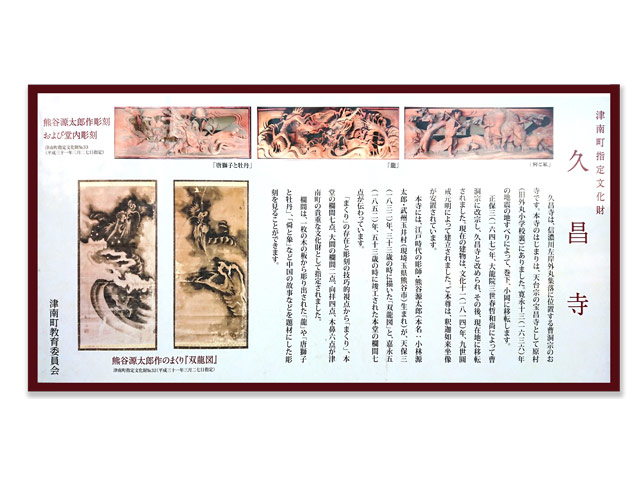 津南町指定文化財
久昌寺
久昌寺は、信濃川左岸外丸集落に位置する曹洞宗のお
寺です。本寺のはじまりは、天台宗の宝昌寺として原村
(旧外丸小学校裏)にありました。寛永十三(一六三六)年
の地震の地すべりによって、巻下、小岡に移転します。
正保三(一六四七)年、大龍院三世春哲和尚によって曹
洞宗に改宗し、久昌寺と改められ、その後、現在地に移転
されました。現在の建物は、文化十一(一八一四)年、九世圓
戒元明によって建立されました。ご本尊は、釈迦如来坐像
が安置されています。
本寺には、江戸時代の彫師・熊谷源太郎(本名:小林源
太郎・武州玉井村(現埼玉県熊谷市)生まれ)が、天保三
(一八三二)年、三十三歳の時に描いた「双龍図」と、嘉永五
(一八五二)年、五十三歳の時に竣工された本堂の欄間七
点が伝わっています。
「まくり」の存在と彫刻の技巧的視点から「まくり」、本
堂の欄間七点、大間の欄間二点、向拝四点、木鼻六点が津
南町の貴重な文化財として指定されました。
欄間は、一枚の木の板から彫り出された「龍」や「唐獅子
と牡丹」、「舜と象」など中国の故事などを題材にした彫
刻を見ることができます。
「龍」
「唐獅子と牡丹」
熊谷源太郎作彫刻
および堂内彫刻
津南町指定文化財No.33
(平成三十一年三月二七日指定)
熊谷源太郎作のまくり「双龍図」
津南町指定文化財No.32(平成三十一年三月二七日指定)
津南町教育委員会